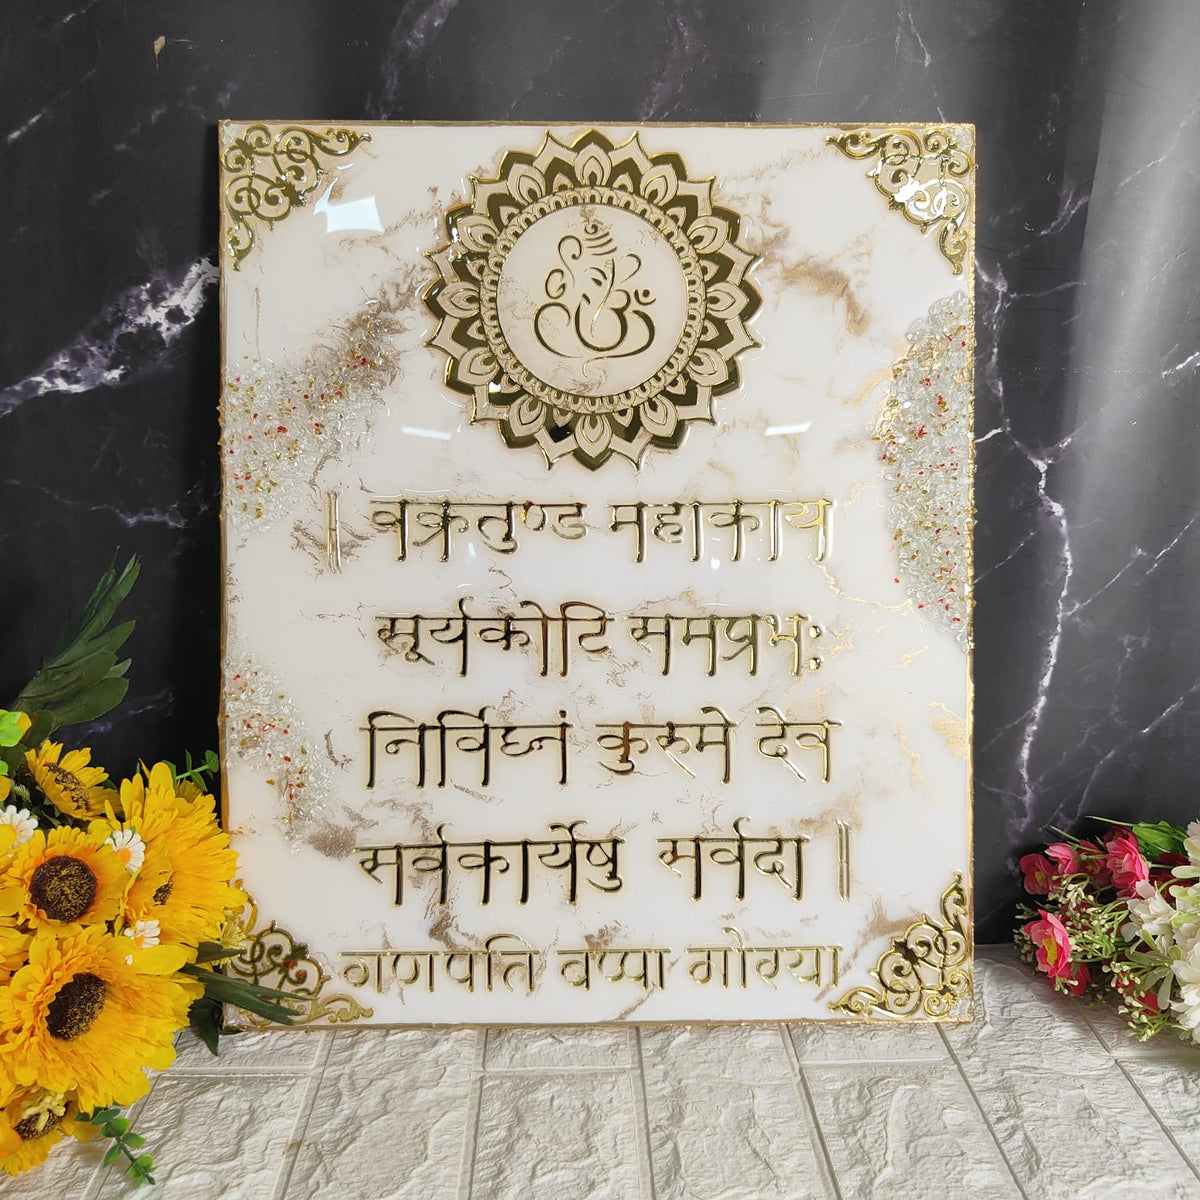 ॥ वक्रतुण्ड महाकाय
सूर्यकोटि समप्रभः
निर्विघ्नं कुरुमे देव
सर्वकार्येषु सर्वदा ॥
गणपति वप्पा मोरया